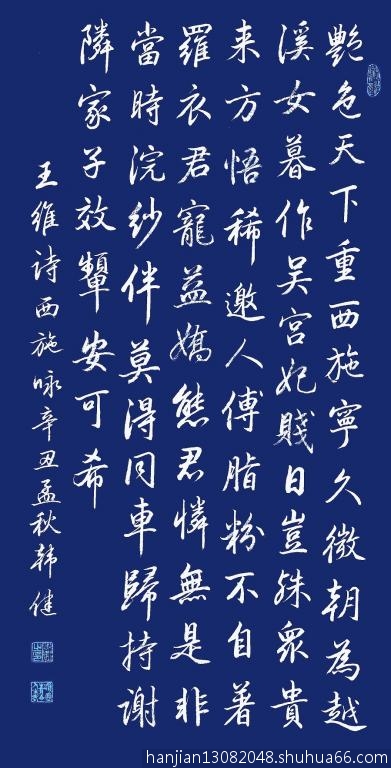 艷色天下重西施寧久微朝為越
溪女暮作吴宫妃賤日豈殊衆貴
来方悟稀邀人傅脂粉不自著
羅衣君寵益嬌態君憐無是非
當時浣紗伴莫得同車歸持谢
隣家子效顰安可希
王维诗西施咏辛丑孟秋韩健
hanjian13082048.shuhua66.com